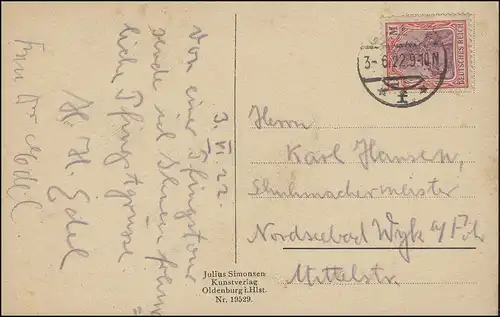 3. VI. 22.
Von einer Pfingsttour
sende ich Ihnen
liche Pfingstgrüsse.
H. H. Edel
Frau Edel
3-6.22.9-10N
DEUTSCHES REICH
M
Herrn
Karl Hansen,
Schuhmachermeister
Nordseebad Wyk a/Föhr
Mittelstr.
Julius Simonsen
Kunstverlag
Oldenburg i. Hlst.
Nr. 19529.